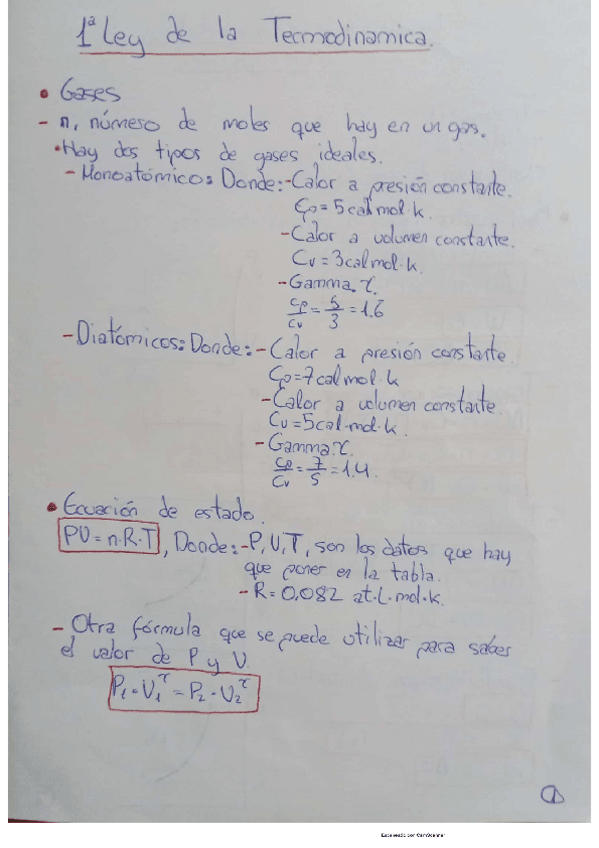 1ª Ley de la Termodinamica.
• Gases
- n, número de moles que hay en un gas.
• Hay dos tipos de gases ideales.
- Monoatómico: Donde: - Calor a presión constante.
Cp = 5 cal mol·k.
- Calor a volumen constante.
Cv = 3 cal mol·k.
- Gamma. γ.
Cp/Cv = 5/3 = 1.6
- Diatómicos: Donde: - Calor a presión constante.
Cp = 7 cal mol·k
- Calor a volumen constante.
Cv = 5 cal·mol·k.
- Gamma. γ.
Cp/Cv = 7/5 = 1.4.
• Ecuación de estado.
PV = n·R·T, Donde: - P, V, T, son los datos que hay
que poner en la tabla.
- R = 0,082 at·L·mol·k.
- Otra fórmula que se puede utilizar para saber
el valor de P y V.
P₁·V₁^γ = P₂·V₂^γ
1
Escaneado con CamScanner